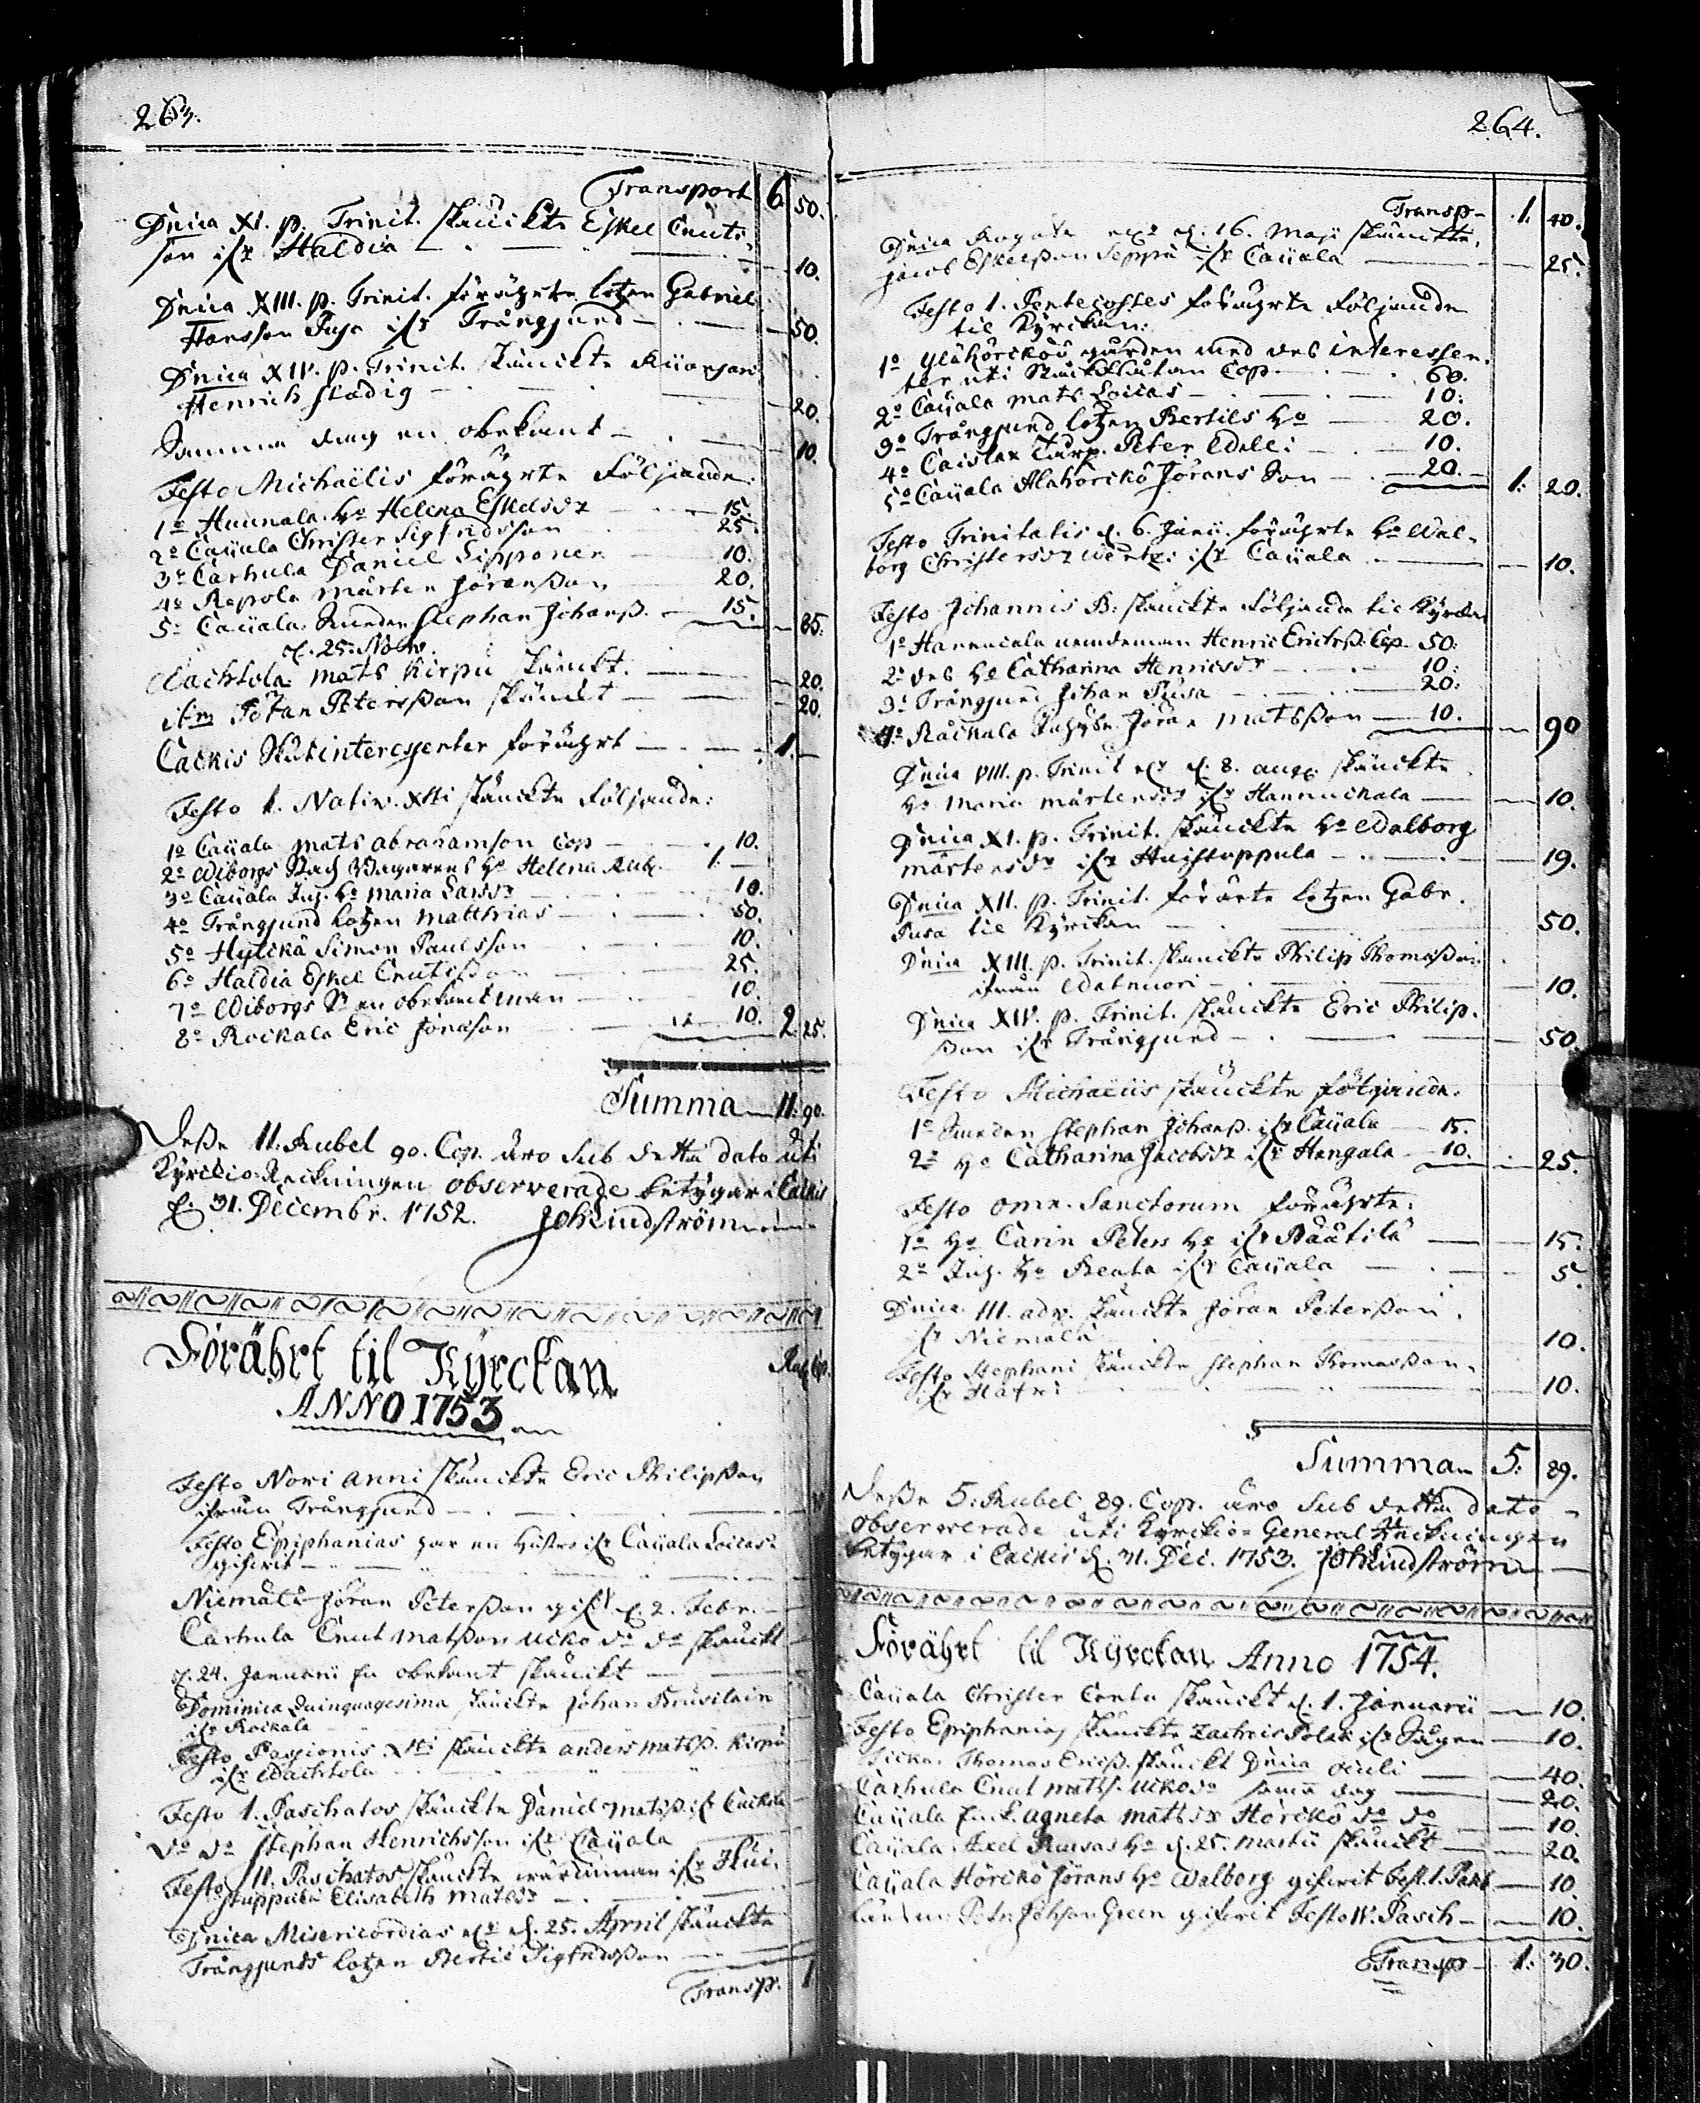 263.
Transport 6 50.
Dnica XI. p. Trinit. skänckte Eskel Cnuts-
son ifr Haldia 10.
Dnica XIII. p. Trinit. förährte lotzen Gabriel
Hansson Pusa ifr Trångsund 50.
Dnica XIV. p. Trinit. skänckte
Henrich Stadig 20.
Samma dag en obekant 10.
Festo Michaëlis förährte följande:
1o Hunnala. Ho Helena Eskelsdr 15.
2o Caÿala Christer Sigfridsson 25.
3o Carhula Daniel Sipponen 10.
4o Repola Mårten Jöransson 20.
5o Caÿala Stephan Johanss. 15. 85.
d. 25. Nov.
Wachtola Mats Kirpu skänckt. 20.
itm Petersson skänckt 20.
Cackis interessenter förährt 1.
Festo 1. Nativ. Xti skänckte följande:
1o Caÿala Mats Abrahamson Cop 10.
2o Wiborgs Ho Helena Rub. 1.
3o Caÿala Inh. Ho Maria Larsdr 10.
4o Trångsund lotzen Matthias 50.
5o Hÿlckä Simon Paulsson 10.
6o Haldia Eskel Cnutsson 25.
7o Wiborgs en obekant man 10.
8o Rockala Eric Jönsson 10. 2 25.
Summa 11. 90.
Desse 11. Rubel 90. Cop. äro sub detta dato uti
Kÿrckio-Reckningen observerade betÿgar i Cackis
d. 31. Decembr. 1752. Joh Lindström
Förährt til Kÿrckan
ANNO 1753
Rub. Cop.
Festo Novi anni skänckte Eric Philipsson
ifrån Trångsund
Festo Epiphanias har en Hustro ifr Caÿala
gifwit
Niemälä Jöran Petersson gifit d. 2. Febr.
Carhula Cnut Matsson Uiko do do skänckt
d. 24. Januarii En obekant skänckt
Dominica Quinquagesima skänckte Johan
ifr Rockala
Festo Passionis Xti skänckte Anders Matss. Kirpu
ifr Wachtola
Festo 1. Paschatos skänckte Daniel Matss. ifr
do do Stephan Henrichsson ifr Caÿala
Festo II. Paschatos skänckte ifr Hui-
stuppula Elisabeth Matsdr
Dnica Misericordias d. 25. April skänckte
Trångsunds lotzen Bertil Sigfridsson
Transp. 1
264.
Transp 1. 40.
Dnica Rogate d. 16. Maji skänckte
Jacob Eskelsson Seppä ifr Caÿala 25.
Festo 1. Pentecostes förährte följande
til Kÿrckan:
1o gården med des interessen-
ter uti Cop. 60.
2o Caÿala Mats 10.
3o Trångsund lotzen Bertils Ho 20.
4o Peter 10.
5o Caÿala Alahörickö Jörans Son 20. 1: 20.
Festo Trinitatis d. 6. Junii förährte Ho Wal-
borg Christersdr ifr Caÿala 10.
Festo Johannis B: skänckte följande til Kÿrckan
1o Hannuckala nemdeman Henric Erichss. Cop. 50:
2o des Ho Catharina Henricsdr 10:
3o Trångsund Johan Pusa 20:
4o Rackala Jöran Matsson 10. 90
Dnica VIII. p. Trinit d. 8. aug. skänckte
Ho Maria Mårtensdr ifr Hannuckala 10.
Dnica XI. p. Trinit. skänckte Ho Walborg
Mårtensdr ifr Huistuppula 19.
Dnica XII. p. Trinit. förärte lotzen Gabr.
Pusa til Kÿrckan 50.
Dnica XIII. p. Trinit. skänckte Philip Thomasson
ifrån Watnuori 10.
Dnica XIV. p. Trinit. skänckte Eric Philip-
sson ifr Trångsund 50.
Festo Michaelis skänckte följande:
1o Stephan Johanss. ifr Caÿala 15.
2o Ho Catharina Jacobsdr ifr Hangala 10. 25.
Festo Omn. Sanctorum förährte:
1o Ho Carin Peters Ho ifr Näätilä 15.
2o Inh. Ho Beata ifr Caÿala 5.
Dnica III. adv. skänckte Jöran Petersson
ifr Niemälä 10.
Festo Stephani skänckte Stephan Thomasson
ifr Hatri 10.
Summa 5: 89.
Desse 5: Rubel 89. Cop. äro sub detta dato
observerade uti Kÿrckio-General Räckningen
betÿgar i Cackis d. 31. Dec. 1753. Joh Lindström
Förährt til Kÿrckan Anno 1754.
Caÿala Christer skänckt d. 1. Januarii 10.
Festo Epiphanias skänckte Zachris 10.
Thomas Ericss. skänckt Dnica Oculi 40.
Carhula Cnut Matss. Uiko do sama dag 20.
Caÿala Enck. Agneta Matsdr Hörckö do do 10.
Caÿala Axel Ho d. 25. Martii skänckt 20.
Caÿala Hörckö Jörans Ho Walborg gifwit Fest. 1. Pasch 10.
Petr. Johson Green gifwit Festo IV. Pasch 10.
Transp 1: 30.